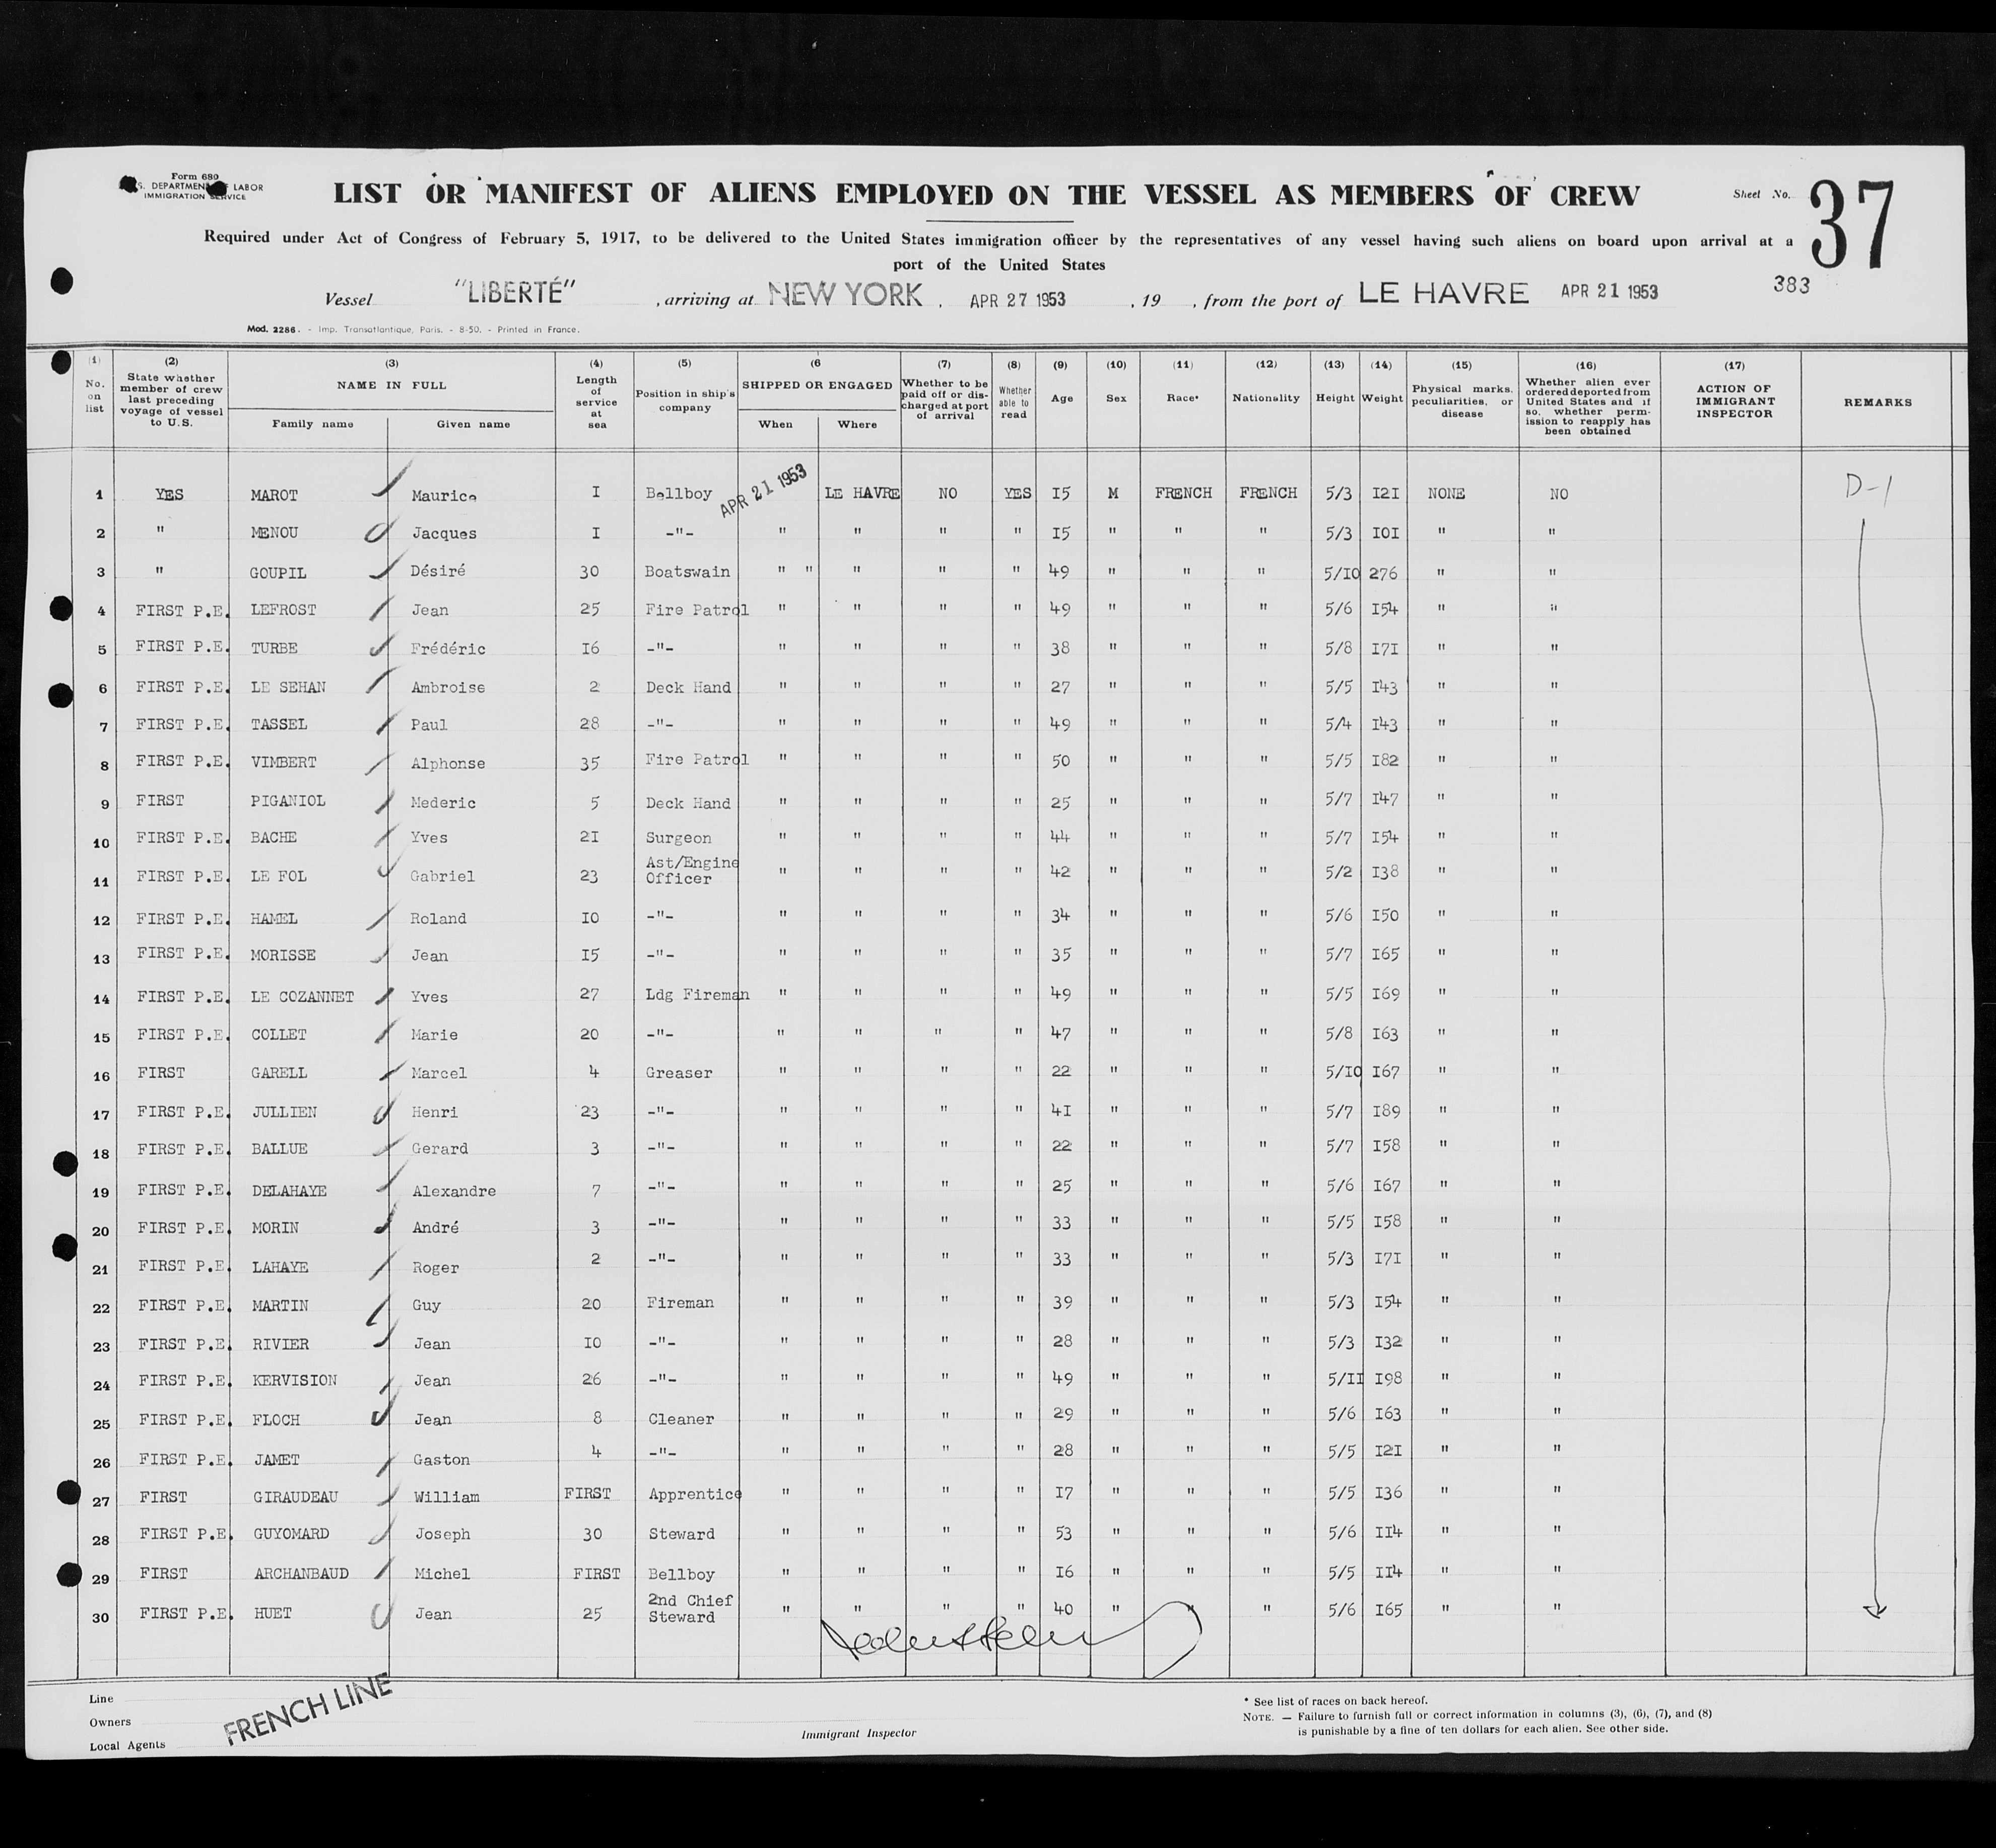 Form 680
S. DEPARTMENT OF LABOR
IMMIGRATION SERVICE
LIST OR MANIFEST OF ALIENS EMPLOYED ON THE VESSEL AS MEMBERS OF CREW
Sheet No. 37
Required under Act of Congress of February 5, 1917, to be delivered to the United States immigration officer by the representatives of any vessel having such aliens on board upon arrival at a
port of the United States
Vessel "LIBERTÉ", arriving at NEW YORK, APR 27 1953, 19, from the port of LE HAVRE APR 21 1953 383
Mod. 2286. - Imp. Transatlantique, Paris. - 8-50. - Printed in France.
(1) No. on list (2) State whether member of crew last preceding voyage of vessel to U.S. (3) NAME IN FULL Family name Given name (4) Length of service at sea (5) Position in ship's company (6 SHIPPED OR ENGAGED When Where (7) Whether to be paid off or discharged at port of arrival (8) Whether able to read (9) Age (10) Sex (11) Race* (12) Nationality (13) Height (14) Weight (15) Physical marks, peculiarities, or disease (16) Whether alien ever ordered deported from United States and if so, whether permission to reapply has been obtained (17) ACTION OF IMMIGRANT INSPECTOR REMARKS
1 YES MAROT Maurice I Bellboy APR 21 1953 LE HAVRE NO YES I5 M FRENCH FRENCH 5/3 I2I NONE NO D-1
2 " MENOU Jacques I -"- " " " " I5 " " " 5/3 IOI " "
3 " GOUPIL Désiré 30 Boatswain " " " " " 49 " " " 5/IO 276 " "
4 FIRST P.E. LEFROST Jean 25 Fire Patrol " " " " 49 " " " 5/6 I54 " "
5 FIRST P.E. TURBE Frédéric I6 -"- " " " " 38 " " " 5/8 I7I " "
6 FIRST P.E. LE SEHAN Ambroise 2 Deck Hand " " " " 27 " " " 5/5 I43 " "
7 FIRST P.E. TASSEL Paul 28 -"- " " " " 49 " " " 5/4 I43 " "
8 FIRST P.E. VIMBERT Alphonse 35 Fire Patrol " " " " 50 " " " 5/5 I82 " "
9 FIRST PIGANIOL Mederic 5 Deck Hand " " " " 25 " " " 5/7 I47 " "
10 FIRST P.E. BACHE Yves 2I Surgeon " " " " 44 " " " 5/7 I54 " "
11 FIRST P.E. LE FOL Gabriel 23 Ast/Engine Officer " " " " 42 " " " 5/2 I38 " "
12 FIRST P.E. HAMEL Roland IO -"- " " " " 34 " " " 5/6 I50 " "
13 FIRST P.E. MORISSE Jean I5 -"- " " " " 35 " " " 5/7 I65 " "
14 FIRST P.E. LE COZANNET Yves 27 Ldg Fireman " " " " 49 " " " 5/5 I69 " "
15 FIRST P.E. COLLET Marie 20 -"- " " " " 47 " " " 5/8 I63 " "
16 FIRST GARELL Marcel 4 Greaser " " " " 22 " " " 5/IO I67 " "
17 FIRST P.E. JULLIEN Henri 23 -"- " " " " 4I " " " 5/7 I89 " "
18 FIRST P.E. BALLUE Gerard 3 -"- " " " " 22 " " " 5/7 I58 " "
19 FIRST P.E. DELAHAYE Alexandre 7 -"- " " " " 25 " " " 5/6 I67 " "
20 FIRST P.E. MORIN André 3 -"- " " " " 33 " " " 5/5 I58 " "
21 FIRST P.E. LAHAYE Roger 2 -"- " " " " 33 " " " 5/3 I7I " "
22 FIRST P.E. MARTIN Guy 20 Fireman " " " " 39 " " " 5/3 I54 " "
23 FIRST P.E. RIVIER Jean IO -"- " " " " 28 " " " 5/3 I32 " "
24 FIRST P.E. KERVISION Jean 26 -"- " " " " 49 " " " 5/II I98 " "
25 FIRST P.E. FLOCH Jean 8 Cleaner " " " " 29 " " " 5/6 I63 " "
26 FIRST P.E. JAMET Gaston 4 -"- " " " " 28 " " " 5/5 I2I " "
27 FIRST GIRAUDEAU William FIRST Apprentice " " " " I7 " " " 5/5 I36 " "
28 FIRST P.E. GUYOMARD Joseph 30 Steward " " " " 53 " " " 5/6 II4 " "
29 FIRST ARCHANBAUD Michel FIRST Bellboy " " " " I6 " " " 5/5 II4 " "
30 FIRST P.E. HUET Jean 25 2nd Chief Steward " " " " 40 " " " 5/6 I65 " "
Line
Owners
Local Agents
FRENCH LINE
Immigrant Inspector
* See list of races on back hereof.
NOTE. — Failure to furnish full or correct information in columns (3), (6), (7), and (8)
is punishable by a fine of ten dollars for each alien. See other side.